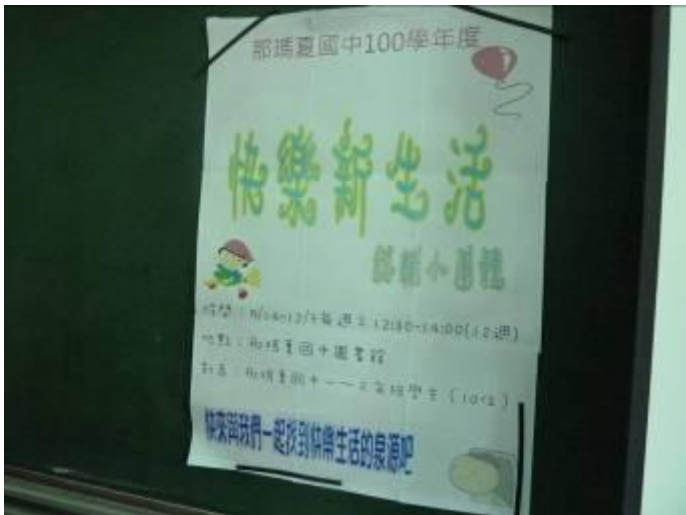 那瑪夏國中100學年度
快樂新生活
小團體
時間：9/14-12/7每週三12:30-14:00(12週)
地點：那瑪夏國中圖書館
對象：那瑪夏國中一~三年級學生(10位)
快來與我們一起找到快樂生活的泉源吧